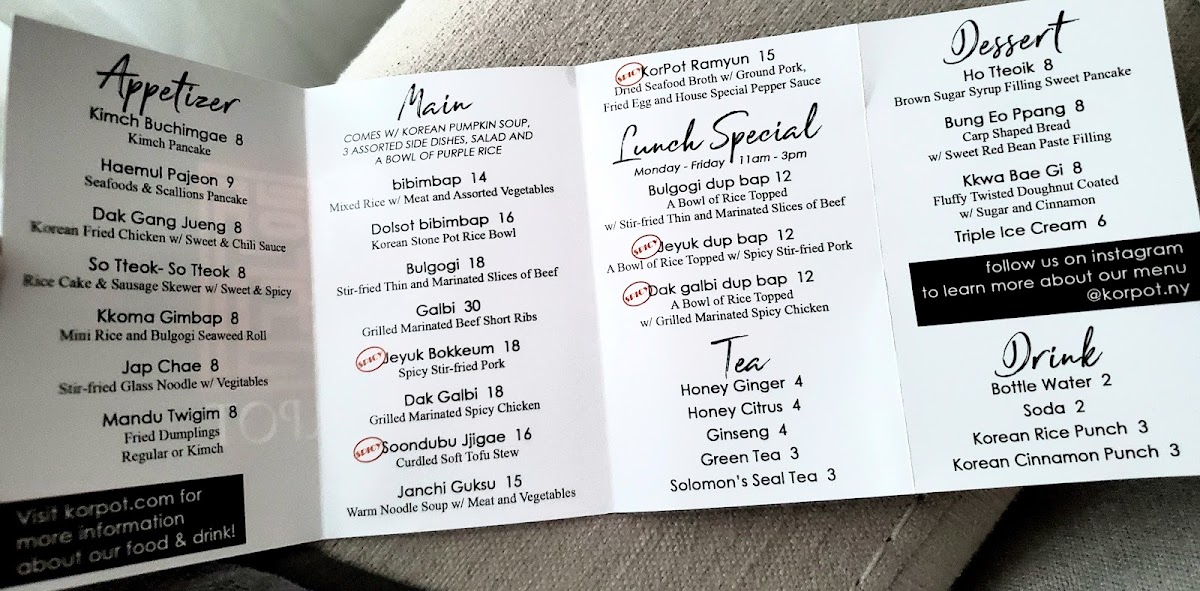 Appetizer
Kimch Buchimgae 8
Kimch Pancake
Haemul Pajeon 9
Seafoods & Scallions Pancake
Dak Gang Jueng 8
Korean Fried Chicken w/ Sweet & Chili Sauce
So Tteok- So Tteok 8
Rice Cake & Sausage Skewer w/ Sweet & Spicy
Kkoma Gimbap 8
Mini Rice and Bulgogi Seaweed Roll
Jap Chae 8
Stir-fried Glass Noodle w/ Vegitables
Mandu Twigim 8
Fried Dumplings
Regular or Kimch
Visit korpot.com for
more information
about our food & drink!
Main
COMES W/ KOREAN PUMPKIN SOUP,
3 ASSORTED SIDE DISHES, SALAD AND
A BOWL OF PURPLE RICE
bibimbap 14
Mixed Rice w/ Meat and Assorted Vegetables
Dolsot bibimbap 16
Korean Stone Pot Rice Bowl
Bulgogi 18
Stir-fried Thin and Marinated Slices of Beef
Galbi 30
Grilled Marinated Beef Short Ribs
SPICY Jeyuk Bokkeum 18
Spicy Stir-fried Pork
Dak Galbi 18
Grilled Marinated Spicy Chicken
SPICY Soondubu Jjigae 16
Curdled Soft Tofu Stew
Janchi Guksu 15
Warm Noodle Soup w/ Meat and Vegetables
SPICY KorPot Ramyun 15
Dried Seafood Broth w/ Ground Pork,
Fried Egg and House Special Pepper Sauce
Lunch Special
Monday - Friday 11am - 3pm
Bulgogi dup bap 12
A Bowl of Rice Topped
w/ Stir-fried Thin and Marinated Slices of Beef
SPICY Jeyuk dup bap 12
A Bowl of Rice Topped w/ Spicy Stir-fried Pork
SPICY Dak galbi dup bap 12
A Bowl of Rice Topped
w/ Grilled Marinated Spicy Chicken
Tea
Honey Ginger 4
Honey Citrus 4
Ginseng 4
Green Tea 3
Solomon's Seal Tea 3
Dessert
Ho Tteoik 8
Brown Sugar Syrup Filling Sweet Pancake
Bung Eo Ppang 8
Carp Shaped Bread
w/ Sweet Red Bean Paste Filling
Kkwa Bae Gi 8
Fluffy Twisted Doughnut Coated
w/ Sugar and Cinnamon
Triple Ice Cream 6
follow us on instagram
to learn more about our menu
@korpot.ny
Drink
Bottle Water 2
Soda 2
Korean Rice Punch 3
Korean Cinnamon Punch 3